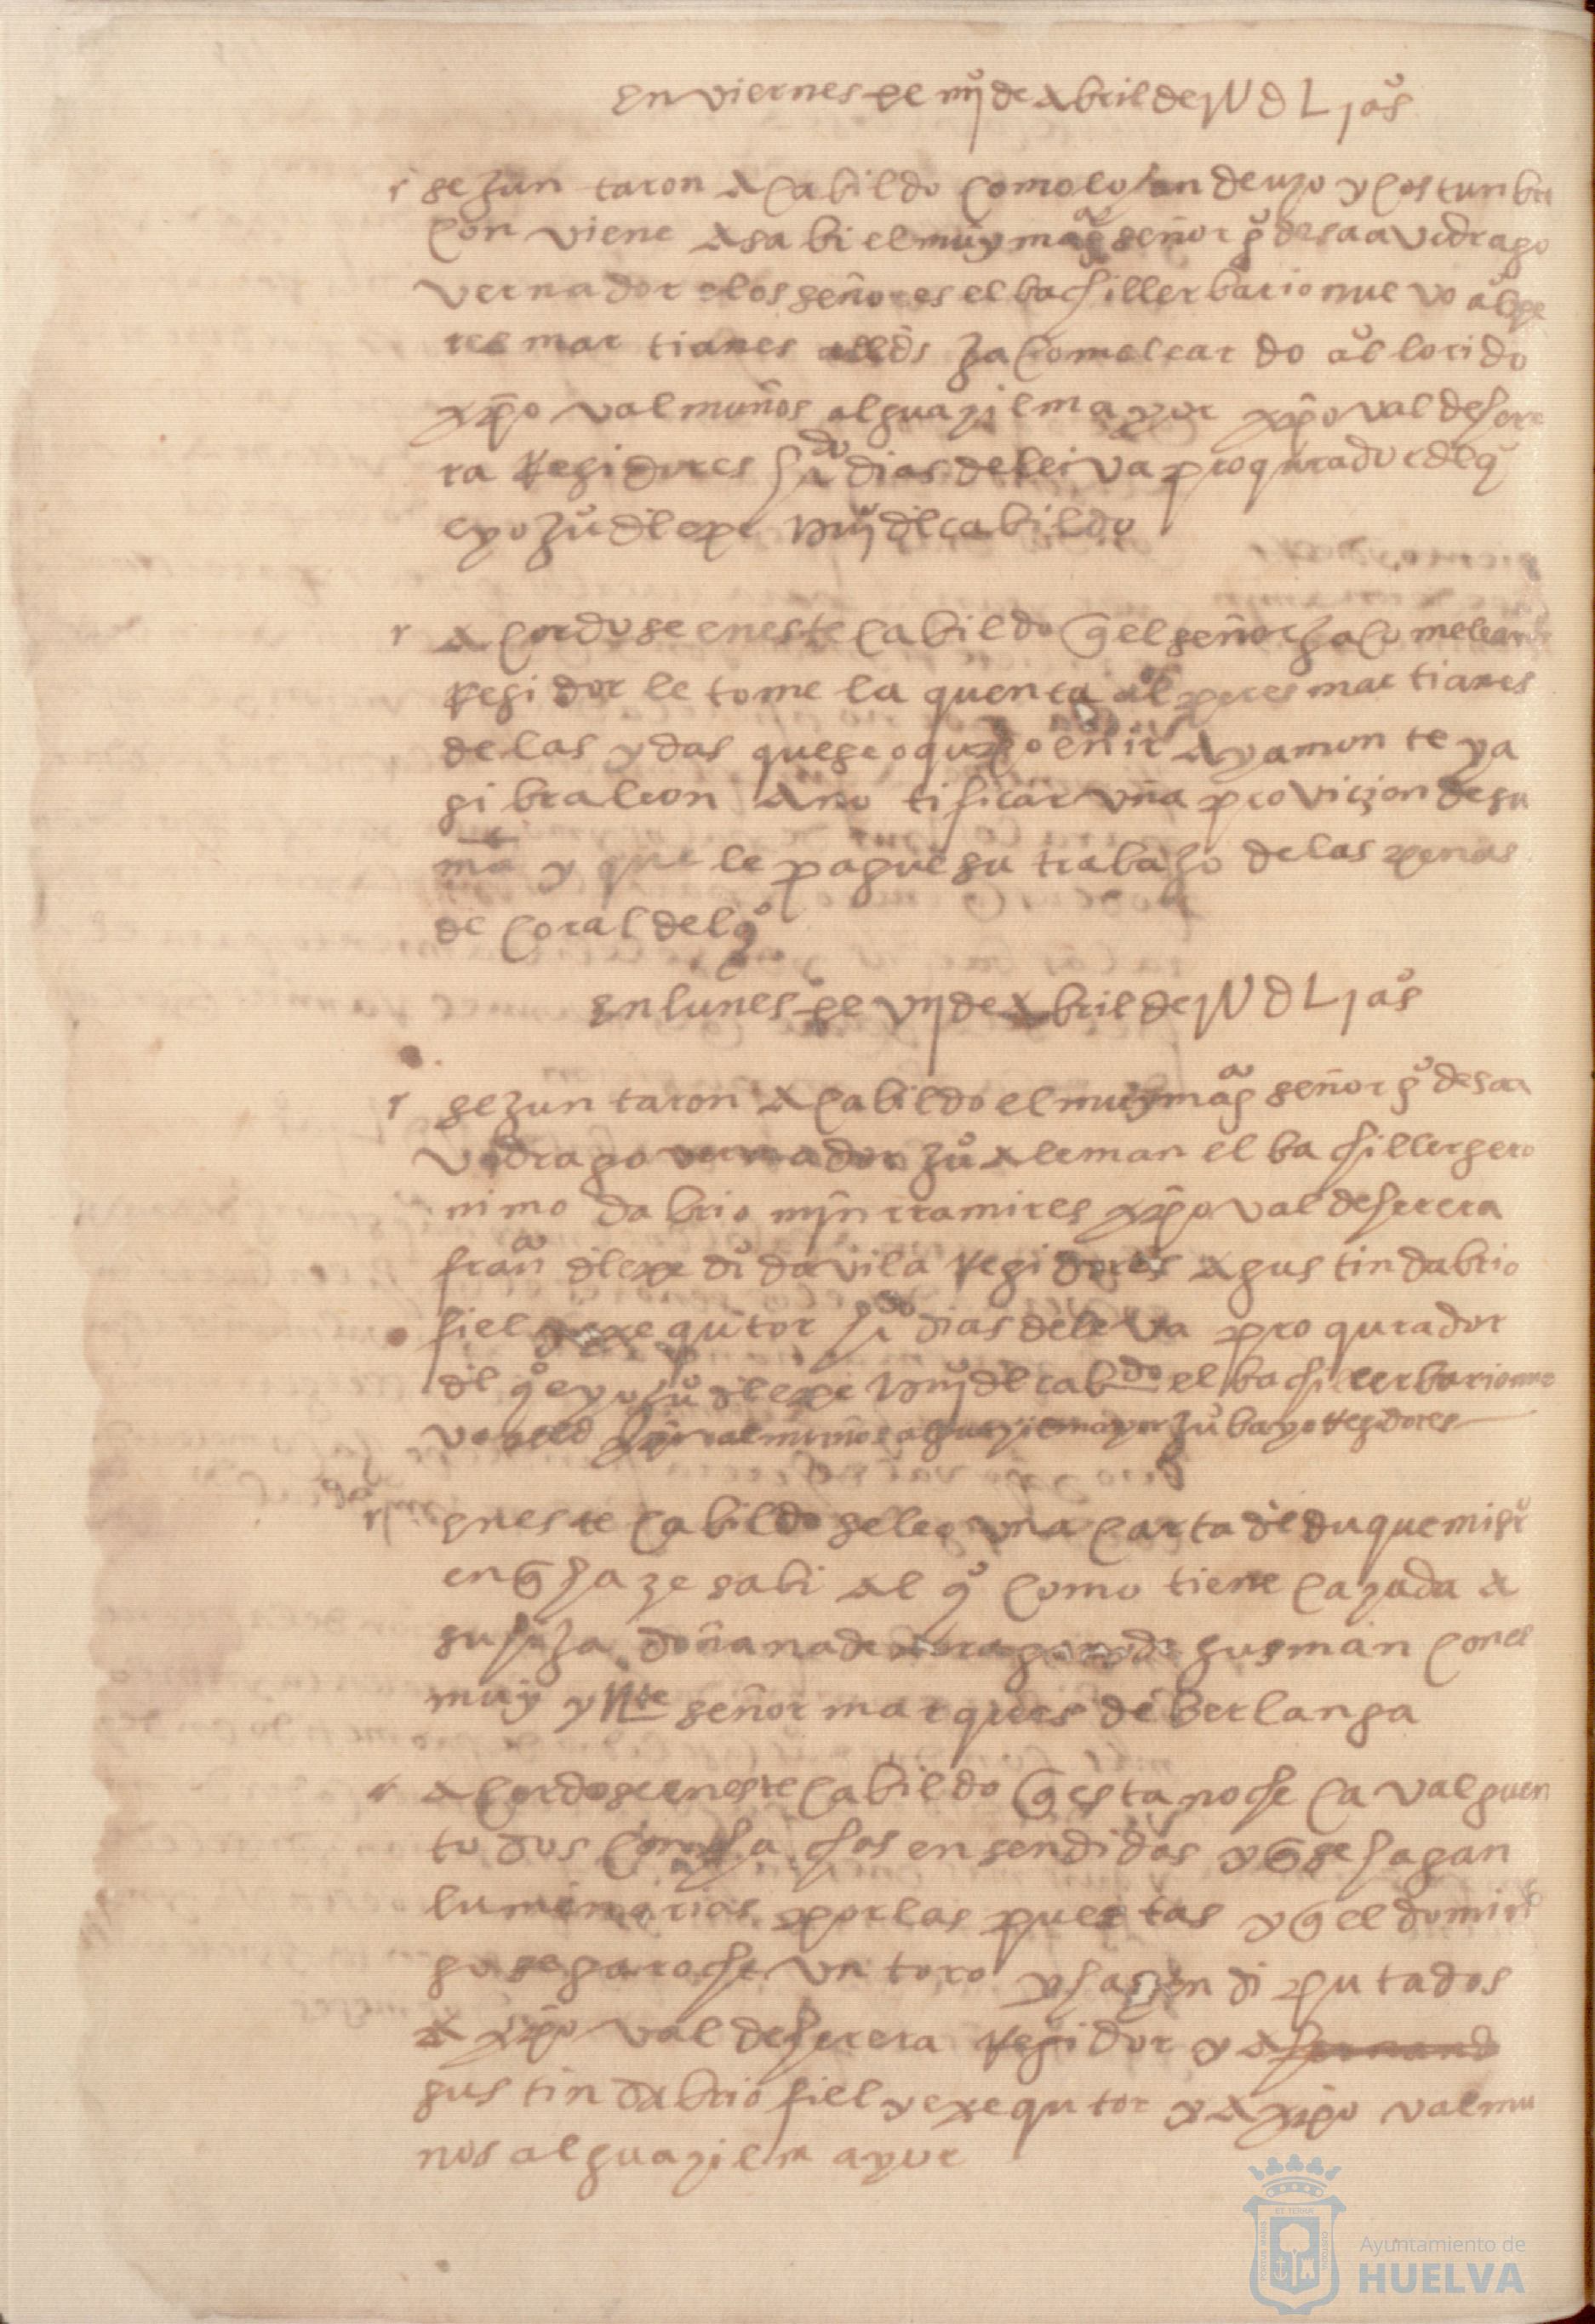 en viernes pe iiijº de Abril de jU d L j aºs
r se juntaron A cabildo como lo han de uzo y costunbre
conviene A sabi el muy magco señor gº de saavedra go
vernador e los señores el bachiller barionuevo aº lpe
res martianes allds jacome leardo aº llorido
xpoval muños alguazil mayor xpoval de here
ra Regidores hdo dias de leiva procurador del qº
e yo juº dlepe sno dl cabildo
r Acordose en este cabildo q el señor jacome leardo
Regidor le tome la quenta al peres martianes
de las ydas que se oqupo en ir Ayamonte y a
gibraleon A notificar una provicion de su
mat y que le pague su trabajo de las penas
de coral del qº
en lunes pe vij de Abril de jU d L j aºs
r se juntaron A cabildo el muy magco señor gº de saa
vedra governador juº Aleman el bachiller gero
nimo dabrio myn rramires xpoval de herera
franco dlepe di davila Regidores Agustin dabrio
fiel y exequtor hdo dias de leiva procurador
dl qº e yo juº dlepe sno dl cabdo el bachiller barionue
vo alld xpoval muños alguazil mayor juº bayo Regidores
r en este cabildo se leo una carta del duque mi sr
en q haze sabi Al qº como tiene cazada A
su hija doña na de Aragon de gusman con el
muy ylle señor marques de berlanga
r Acordose en este cabildo q esta noche cavalguen
todos con hachos ensendidos y q se hagan
luminarias por las puertas y q el domin
go se garoche un toro y hasen diputados
A xpoval de herera Regidor y A
gustin dabrio fiel y exequtor y A xpoval mu
nos alguazil mayor
Ayuntamiento de
HUELVA